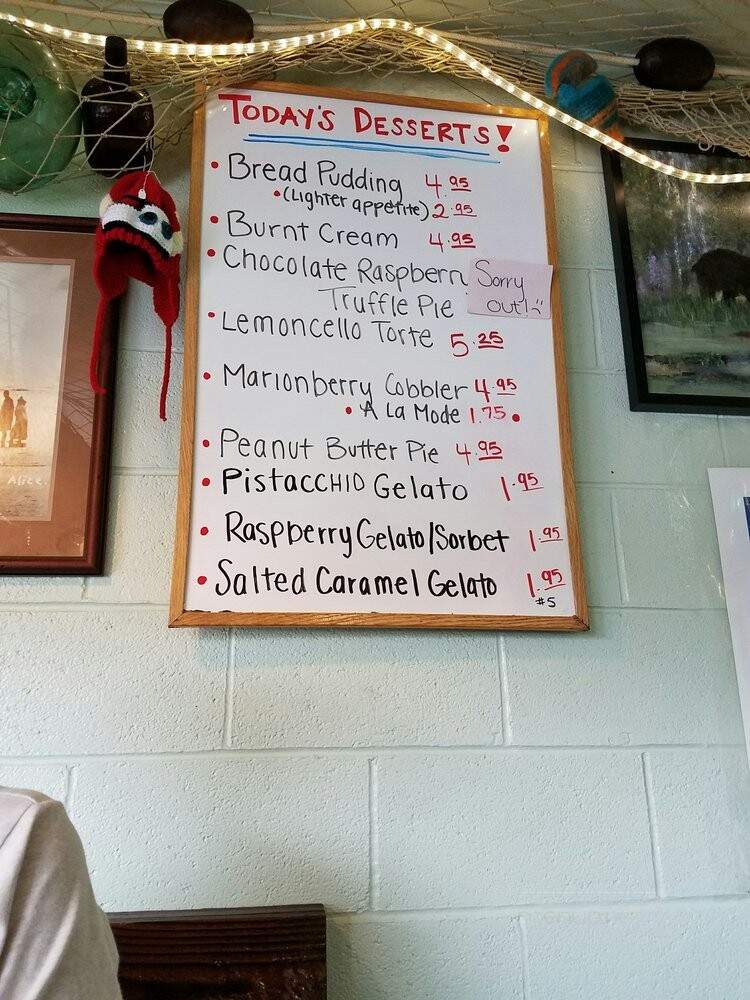 TODAY'S DESSERTS!
• Bread Pudding 4.95
• (Lighter appetite) 2.95
• Burnt Cream 4.95
• Chocolate Raspberry
Truffle Pie
Sorry
out! :(
• Lemoncello Torte 5.25
• Marionberry Cobbler 4.95
• A La Mode 1.75 •
• Peanut Butter Pie 4.95
• PISTACCHIO Gelato 1.95
• Raspberry Gelato/Sorbet 1.95
• Salted Caramel Gelato 1.95
#5
Alice